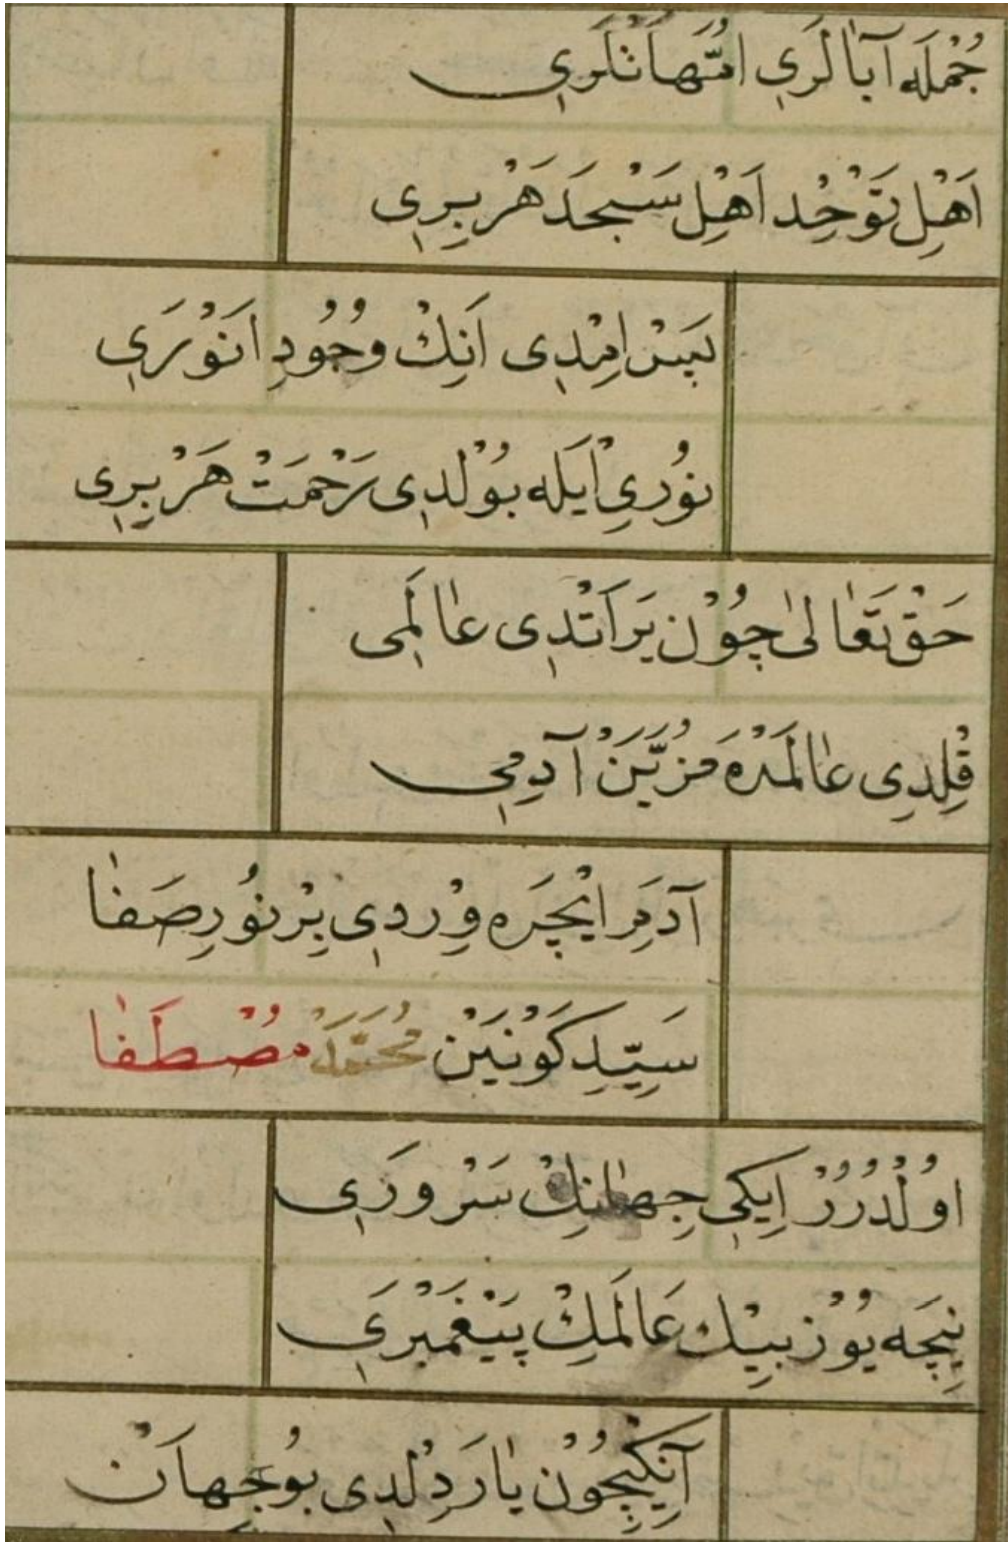 جُمْلَه آبَالَرِي اُمَّهَاتْلَرِي
اَهْلِ تَوْحِد اَهْلِ سَجْدَ هَرْ بِرِي
پَسْ اِمْدِي اَنِكْ وُجُودِ اَنْوَرِي
نُورِي اَيلَه بُوْلدِي رَحْمَتْ هَرْ بِرِي
حَقْ تَعَالىٰ چُوْن يَرَاتْدِي عَالَمِي
قِلدِي عَالَمْدَه مُزَيَّنْ آدَمِي
آدَمِ اِيْچَرَه وِرْدِي بِرْ نُورِ صَفَا
سَيِّدِ كَوْنَيْنْ مُحَمَّدْ مُصْطَفَا
اوُلْدُرُرْ اِيكِي جِهَانِكْ سَرْوَرِي
نِيچَه يُوْز بِيْك عَالَمِكْ پَيْغَمْبَرِي
آنِكِيچُوْن يَارَدِلْدِي بُو جِهَانْ